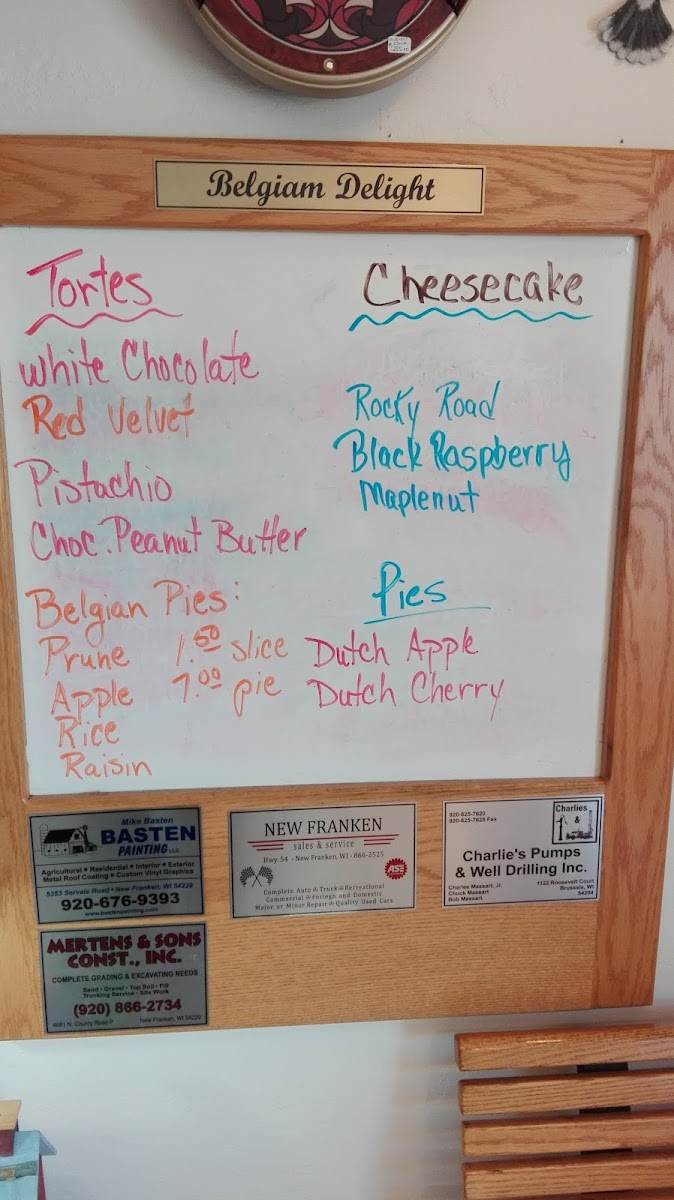 Belgiam Delight
Tortes
White Chocolate
Red Velvet
Pistachio
Choc. Peanut Butter
Belgian Pies:
Prune 1.50 slice
Apple 7.00 pie
Rice
Raisin
Cheesecake
Rocky Road
Black Raspberry
Maplenut
Pies
Dutch Apple
Dutch Cherry
Mike Basten
BASTEN
PAINTING LLC
Agricultural • Residential • Interior • Exterior
Metal Roof Coating • Custom Vinyl Graphics
5353 Servais Road • New Franken, WI 54229
920-676-9393
www.bastenpainting.com
NEW FRANKEN
sales & service
Hwy. 54 - New Franken, WI - 866-2525
ASE
Complete Auto & Truck & Recreational
Commercial & Foriegn and Domestic
Major or Minor Repair & Quality Used Cars
920-825-7620
920-825-7628 Fax
Charlies
&
Charlie's Pumps
& Well Drilling Inc.
Charles Massart, Jr.
Chuck Massart
Bob Massart
1122 Roosevelt Court
Brussels, WI
54204
MERTENS & SONS
CONST., INC.
COMPLETE GRADING & EXCAVATING NEEDS
Sand • Gravel • Top Soil • Fill
Trucking Service • Site Work
(920) 866-2734
4681 N. County Road P New Franken, WI 54229